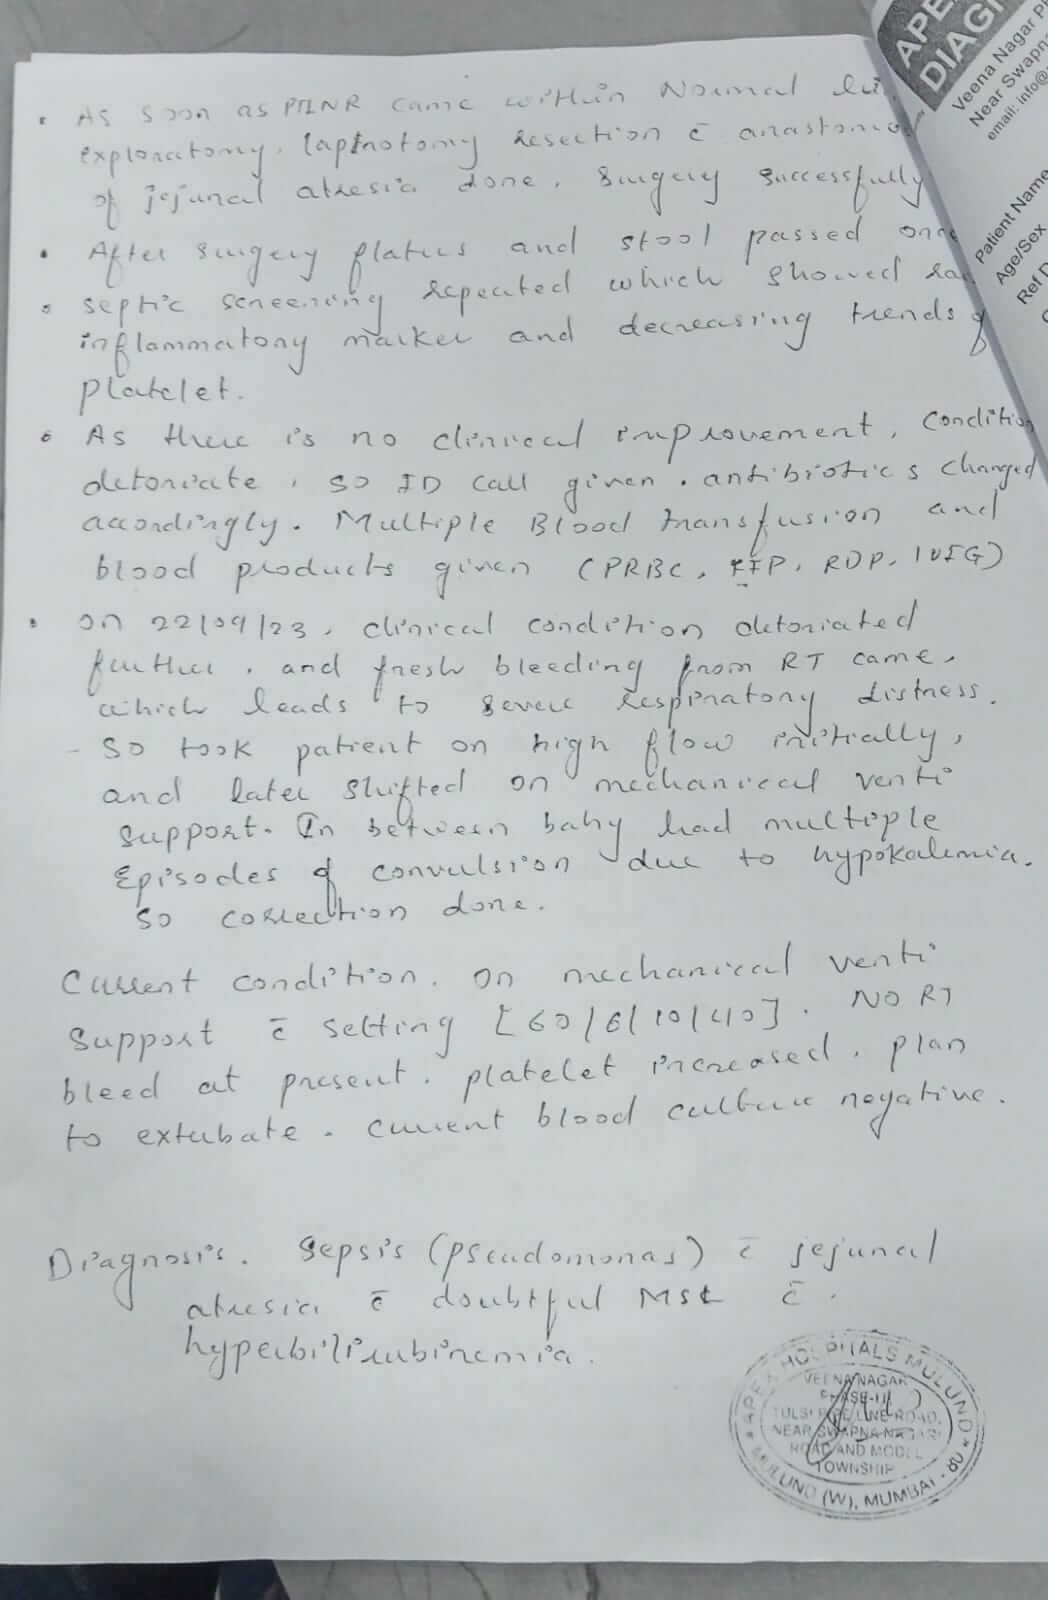 APEX
DIAGN
Veena Nagar Ph
Near Swapna
email: info@a
Patient Name
Age/Sex
Ref D
• As soon as PTINR came within Normal
exploratomy. lapnotomy resection c̄ anastomo
of jejunal atresia done. Surgery successfully
• After surgery flatus and stool passed once
• septic screening repeated which showed
inflammatory marker and decreasing trends of
platelet.
• As there is no clinical improvement, condition
detoriate, so ID call given. antibiotics changed
accordingly. Multiple Blood transfusion and
blood products given (PRBC, FFP, RDP, IVIG)
• on 22/09/23, clinical condition detoriated
further, and fresh bleeding from RT came,
which leads to severe respiratory distress.
- so took patient on high flow initially,
and later shifted on mechanical venti
support. In between baby had multiple
Episodes of convulsion due to hypokalemia.
so correction done.
Current condition. on mechanical venti
support c̄ setting [60/6/10/40]. NO RT
bleed at present. platelet increased. plan
to extubate. current blood culture negative.
Diagnosis. Sepsis (pseudomonas) c̄ jejunal
atresia c̄ doubtful c̄.
hyperbilirubinemia.
APEX HOSPITALS MULUND
VEENA NAGAR
PHASE-II
TULSI PIPE LINE ROAD,
NEAR SWAPNA NAGARI
ROAD AND MODEL
TOWNSHIP
MULUND (W), MUMBAI - 80